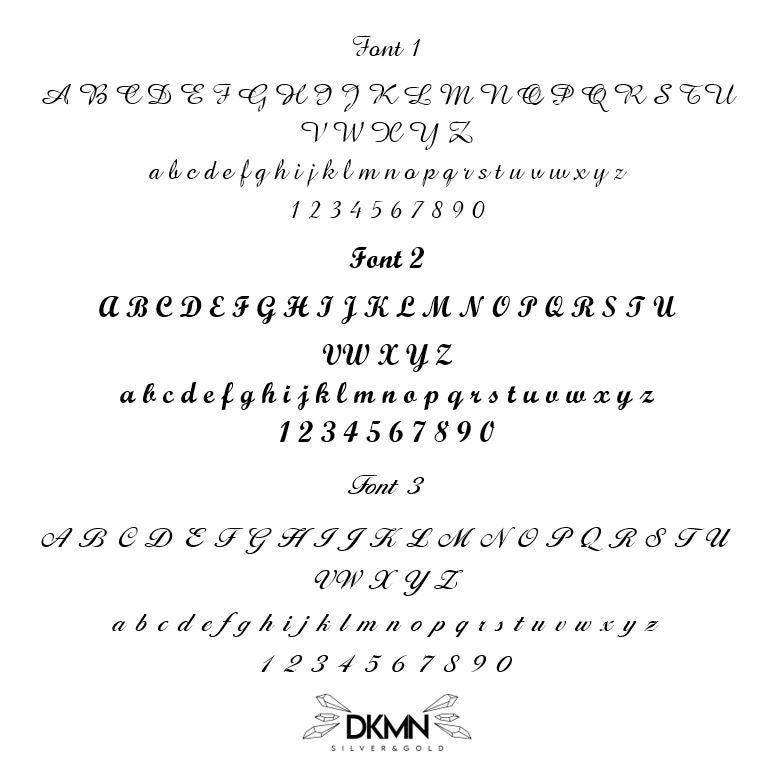 Font 1
A B C D E F G H I J K L M N O P Q R S T U
V W X Y Z
a b c d e f g h i j k l m n o p q r s t u v w x y z
1 2 3 4 5 6 7 8 9 0
Font 2
A B C D E F G H I J K L M N O P Q R S T U
V W X Y Z
a b c d e f g h i j k l m n o p q r s t u v w x y z
1 2 3 4 5 6 7 8 9 0
Font 3
A B C D E F G H I J K L M N O P Q R S T U
V W X Y Z
a b c d e f g h i j k l m n o p q r s t u v w x y z
1 2 3 4 5 6 7 8 9 0
DKMN
SILVER&GOLD